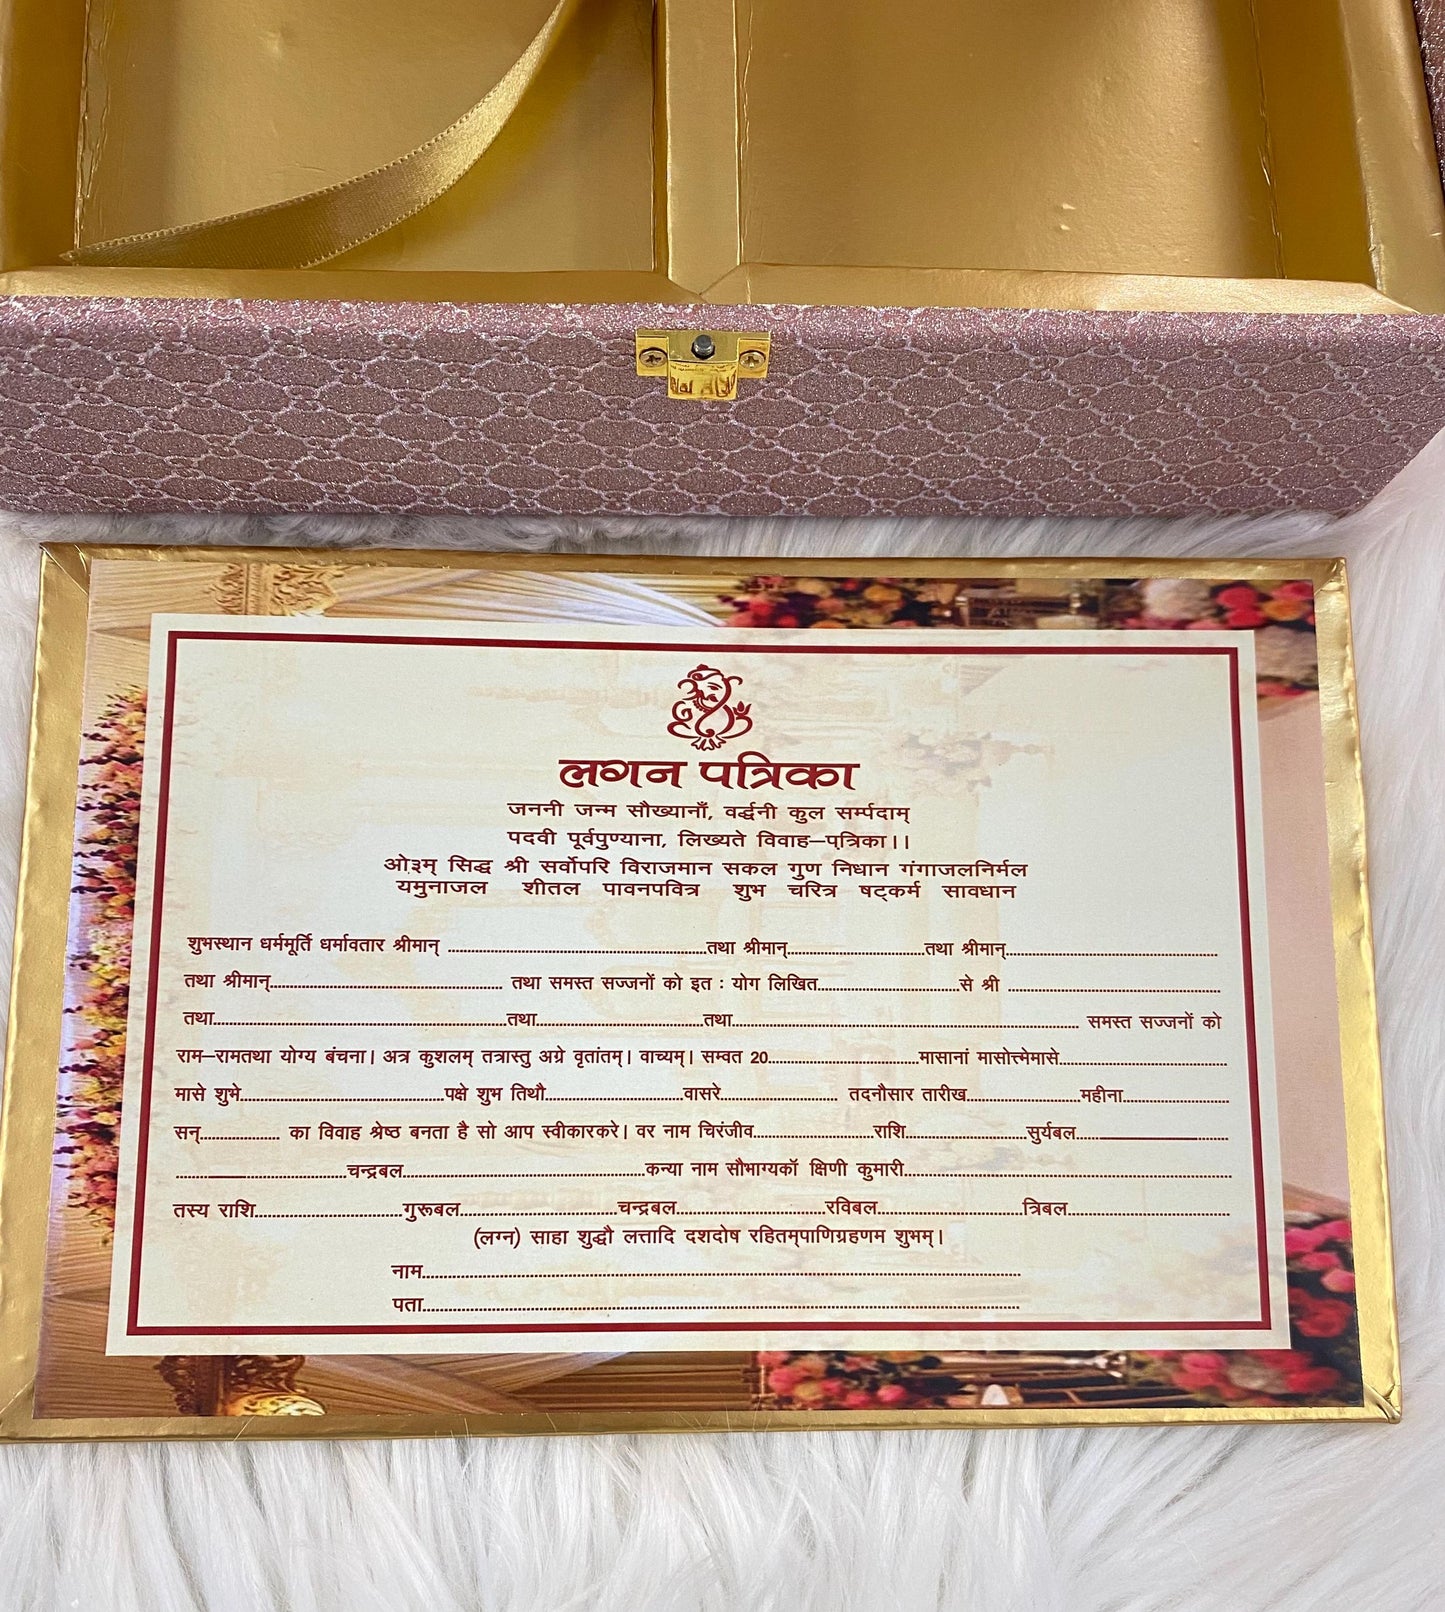 लगन पत्रिका
जननी जन्म सौख्यानाँ, वर्द्धनी कुल सर्म्पदाम्
पदवी पूर्वपुण्याना, लिख्यते विवाह—पत्रिका।।
ओ३म् सिद्ध श्री सर्वोपरि विराजमान सकल गुण निधान गंगाजलनिर्मल
यमुनाजल शीतल पावनपवित्र शुभ चरित्र षट्कर्म सावधान
शुभस्थान धर्ममूर्ति धर्मावतार श्रीमान् ........तथा श्रीमान्........तथा श्रीमान्........
तथा श्रीमान्........ तथा समस्त सज्जनों को इत : योग लिखित........से श्री ........
तथा........तथा........तथा........ समस्त सज्जनों को
राम—रामतथा योग्य बंचना। अत्र कुशलम् तत्रास्तु अग्रे वृतांतम्। वाच्यम्। सम्वत 20........मासानां मासोत्त्मेमासे........
मासे शुभे........पक्षे शुभ तिथौ........वासरे........ तदनौसार तारीख........महीना........
सन्........ का विवाह श्रेष्ठ बनता है सो आप स्वीकारकरे। वर नाम चिरंजीव........राशि........सुर्यबल........
........चन्द्रबल........कन्या नाम सौभाग्यकाॅ क्षिणी कुमारी........
तस्य राशि........गुरूबल........चन्द्रबल........रविबल........त्रिबल........
(लग्न) साहा शुद्धौ लत्तादि दशदोष रहितम्पाणिग्रहणम शुभम्।
नाम........
पता........